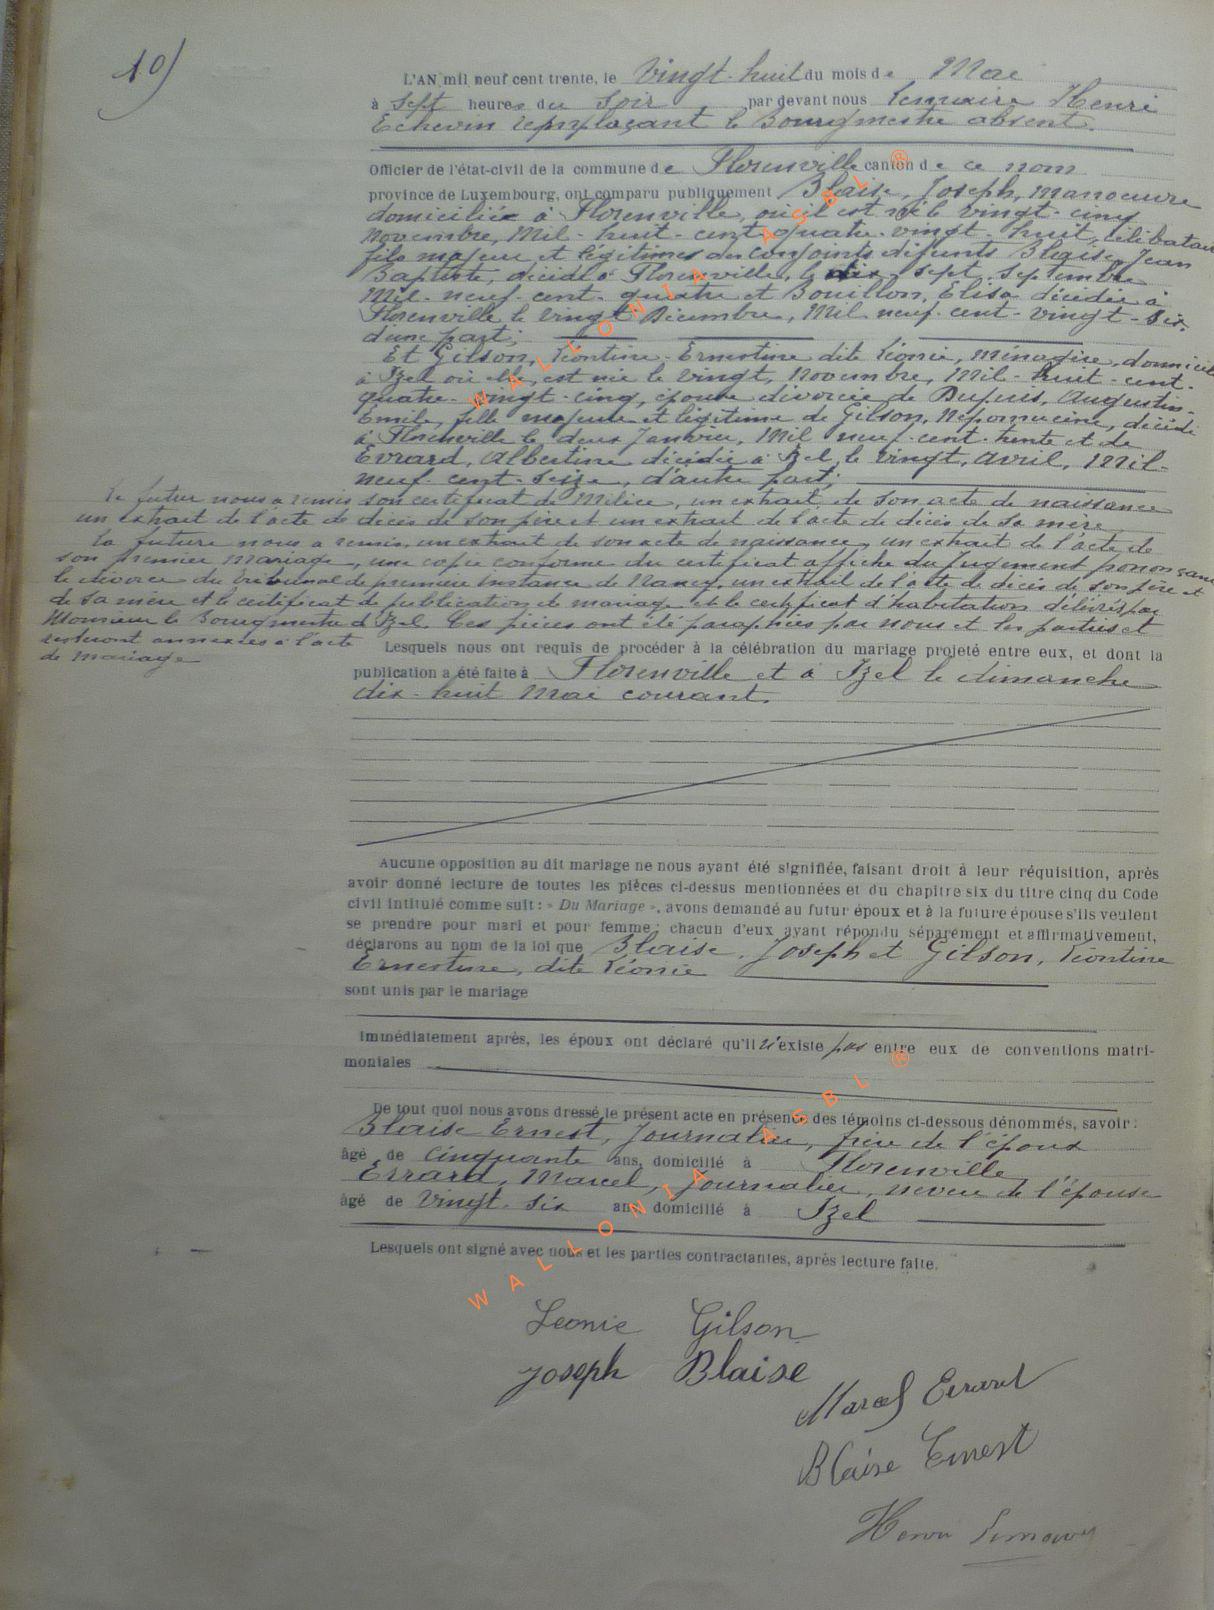 10)
L'AN mil neuf cent trente, le Vingt-huit du mois de Mai
à Sept heures du Soir, par devant nous Lemaire Henri
Echevin remplaçant le Bourgmestre absent.
Officier de l'état-civil de la commune de Florenville canton de ce nom
province de Luxembourg, ont comparu publiquement Blaise, Joseph, Manoeuvre
domiciliée à Florenville, où il est né le vingt-cinq
Novembre, Mil-huit-cent-quatre-vingt-huit, célibataire
fils majeur et légitimes des conjoints défunts Blaise, Jean
Baptiste, décédé à Florenville, le dix-sept Septembre
Mil-neuf-cent-quatre et Bouillon, Elisa décédée à
Florenville le Vingt Décembre, Mil neuf-cent-vingt-six
d'une part;
Et Gilson, Léontine-Ernestine dite Léonie, Ménagère, domicil
à Izel où elle est née le Vingt, Novembre, Mil-huit-cent-
quatre-vingt-cinq, épouse divorcée de Dupuis, Augustin-
Emile, fille majeure et légitime de Gilson, Népomucène, décédé
à Florenville le deux Janvier, Mil neuf-cent-trente et de
Evrard, Albertine décédée à Izel, le Vingt, Avril, Mil-
neuf-cent-seize, d'autre part;
Le futur nous a remis son certificat de Milice, un extrait de son acte de naissance
un extrait de l'acte de décès de son père et un extrait de l'acte de décès de sa mère
La future nous a remis, un extrait de son acte de naissance, un extrait de l'acte de
son premier Mariage, une copie conforme du certificat affiche du Jugement prononçant
le divorce du tribunal de première Instance de Nancy, un extrait de l'acte de décès de son père et
de sa mère et le certificat de publication de mariage et le certificat d'habitation délivrés par
Monsieur le Bourgmestre d'Izel. Ces pièces ont été paraphées par nous et les parties et
resteront annexées à l'acte
de mariage
Lesquels nous ont requis de procéder à la célébration du mariage projeté entre eux, et dont la
publication a été faite à Florenville et à Izel le dimanche
dix-huit Mai courant.
Aucune opposition au dit mariage ne nous ayant été signifiée, faisant droit à leur réquisition, après
avoir donné lecture de toutes les pièces ci-dessus mentionnées et du chapitre six du titre cinq du Code
civil intitulé comme suit: « Du Mariage », avons demandé au futur époux et à la future épouse s'ils veulent
se prendre pour mari et pour femme; chacun d'eux ayant répondu séparément et affirmativement,
déclarons au nom de la loi que Blaise, Joseph et Gilson, Léontine
Ernestine, dite Léonie
sont unis par le mariage
Immédiatement après, les époux ont déclaré qu'il n'existe pas entre eux de conventions matri-
moniales
De tout quoi nous avons dressé le présent acte en présence des témoins ci-dessous dénommés, savoir:
Blaise Ernest, Journalier, frère de l'époux
âgé de cinquante ans, domicilié à Florenville
Evrard, Marcel, Journalier, neveu de l'épouse
âgé de Vingt-six ans domicilié à Izel
Lesquels ont signé avec nous et les parties contractantes, après lecture faite.
Leonie Gilson
Joseph Blaise
Marcel Evrard
Blaise Ernest
Henri Lemaire
WALLONIA ASBL ®
WALLONIA ASBL ®